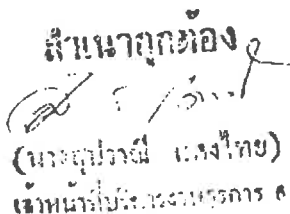 สำเนาถูกต้อง
(นางสุปราณี แสงไทย)
เจ้าหน้าที่บริหารงานธุรการ 6